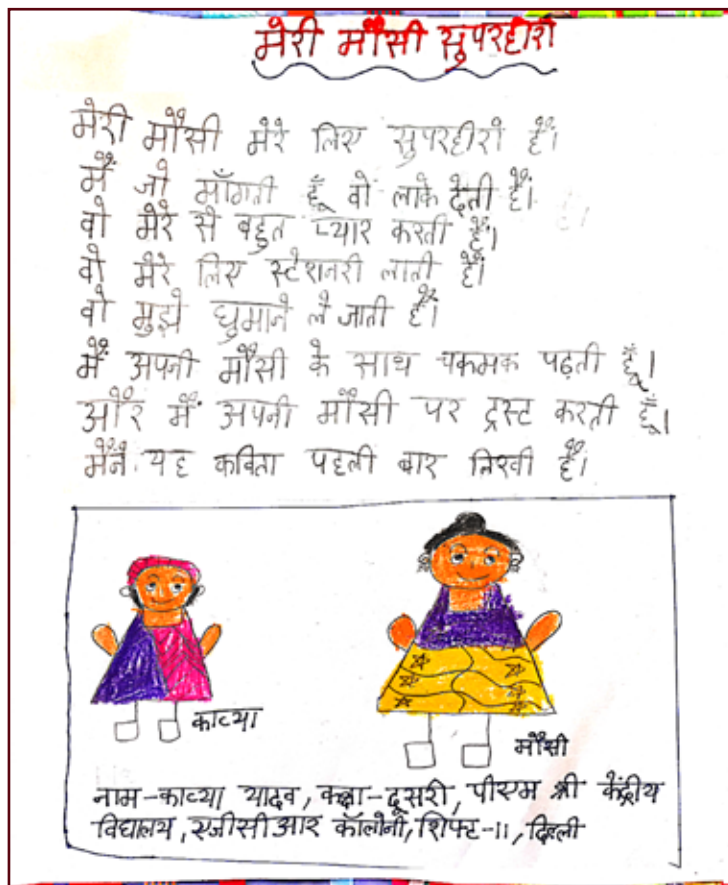 मेरी मौसी सुपरहीरो
मेरी मौसी मेरे लिए सुपरहीरो हैं।
मैं जो माँगती हूँ वो लाके देती हैं।
वो मेरे से बहुत प्यार करती हैं।
वो मेरे लिए स्टेशनरी लाती हैं।
वो मुझे घुमाने ले जाती हैं।
मैं अपनी मौसी के साथ चकमक पढ़ती हूँ।
और मैं अपनी मौसी पर ट्रस्ट करती हूँ।
मैंने यह कविता पहली बार लिखी हैं।
काव्या
मौसी
नाम-काव्या यादव, कक्षा-दूसरी, पीएम श्री केंद्रीय
विद्यालय, एजीसीआर कॉलोनी, शिफ्ट-11, दिल्ली